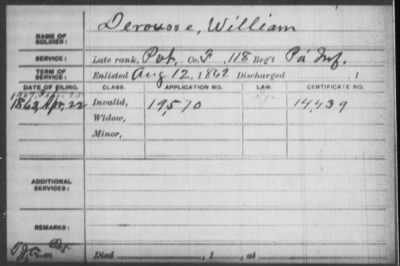 NAME OF SOLDIER: Derousse, William
SERVICE: Late rank, Pvt. Co. F, 118 Reg't Pa Inf.
TERM OF SERVICE: Enlisted Aug 12, 1862 Discharged , 1
DATE OF FILING. CLASS. APPLICATION NO. LAW. CERTIFICATE NO.
1863 Apr. 22 Invalid, 19,570 14,439
Widow,
Minor,
ADDITIONAL SERVICES:
REMARKS:
Died , 1 , at